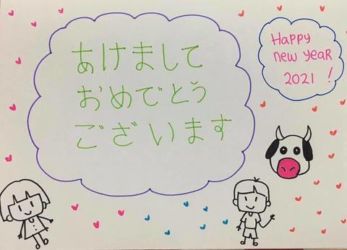 あけまして
おめでとう
ございます
Happy
new year
2021 !